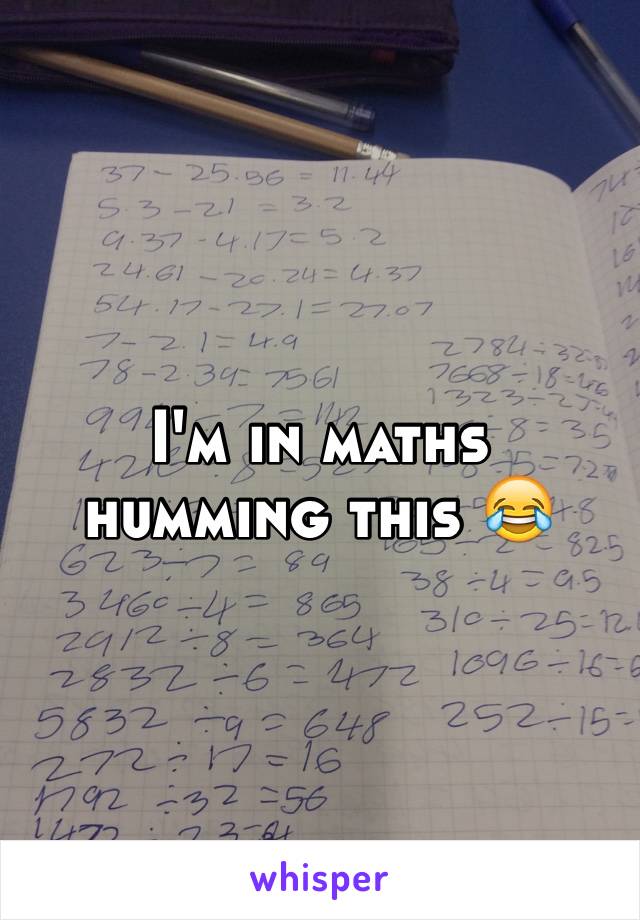 37 - 25.56 = 11.44
5.3 - 2.1 = 3.2
9.37 - 4.17 = 5.2
24.61 - 20.24 = 4.37
54.17 - 27.1 = 27.07
7 - 2.1 = 4.9
78 - 2.39 = 75.61
2784 ÷ 32
7668 ÷ 18
1323 ÷
÷ 8 = 3.5
I'm in maths
humming this 😂
÷ 15 = 7.2
4.8
÷ 2 = 82.5
623 ÷ 7 = 89
38 ÷ 4 = 9.5
3460 ÷ 4 = 865
310 ÷ 25 = 12.
2912 ÷ 8 = 364
2832 ÷ 6 = 472
1096 ÷ 16 = 6
5832 ÷ 9 = 648
252 ÷ 15 =
272 ÷ 17 = 16
1792 ÷ 32 = 56
1472 ÷ 23 = 64
whisper